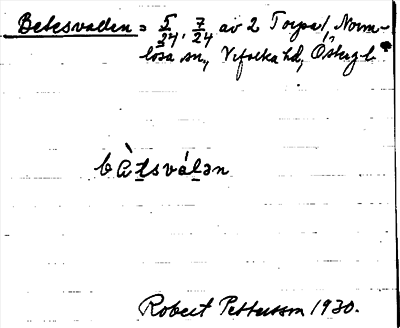 Betesvaden = 5/24, 7/24 av 2 Torpa, Norm-
lösa sn, Vifolka hd, Östergl.
bàtsválən
Robert Pettersson 1930.